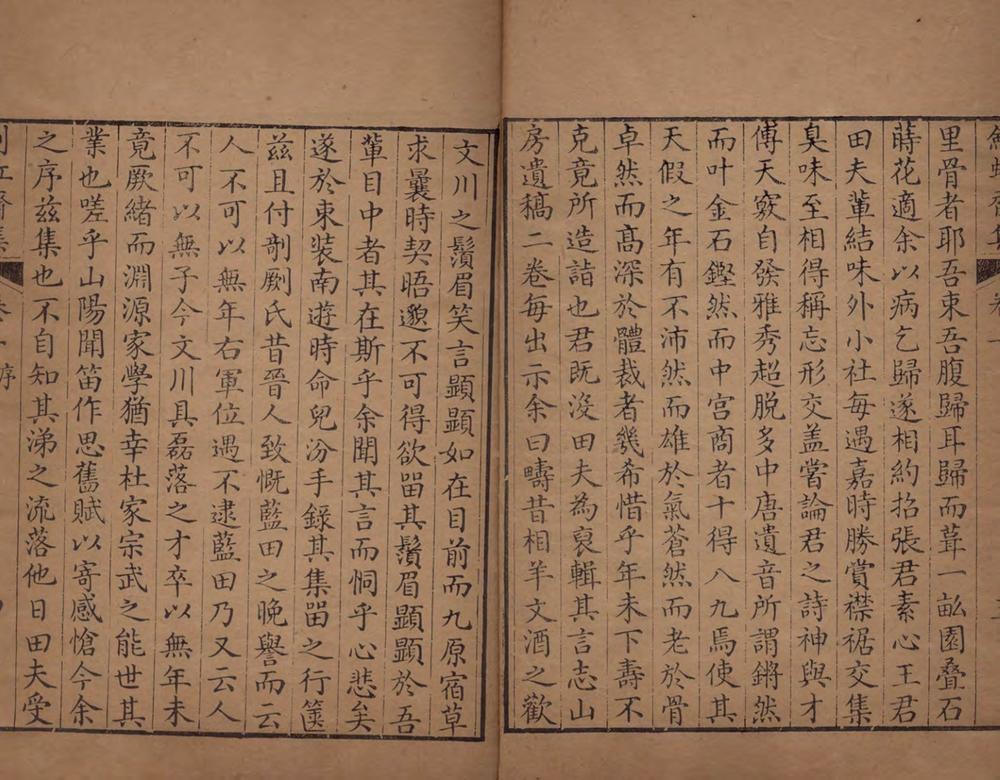 里骨者耶吾束吾腹歸耳歸而葺一畝園疊石
蒔花適余以病乞歸遂相約招張君素心王君
田夫輩結味外小社每遇嘉時勝賞襟裾交集
臭味至相得稱忘形交盖嘗論君之詩神與才
傅天竅自發雅秀超脱多中唐遺音所謂鏘然
而叶金石鏗然而中宫商者十得八九焉使其
天假之年有不沛然而雄於氣蒼然而老於骨
卓然而髙深於體裁者幾希惜乎年未下壽不
克竟所造詣也君既沒田夫為裒輯其言志山
房遺稿二卷每出示余曰疇昔相羊文酒之歡
文川之鬚眉笑言顕顕如在目前而九原宿草
求曩時契晤邈不可得欲畱其鬚眉顕顕於吾
輩目中者其在斯乎余聞其言而恫乎心悲矣
遂於東装南遊時命兒汾手錄其集畱之行篋
兹且付剞劂氏昔晉人致慨藍田之晚譽而云
人不可以無年右軍位遇不逮藍田乃又云人
不可以無子今文川具磊落之才卒以無年未
竟厥緒而淵源家學猶幸杜家宗武之能世其
業也嗟乎山陽聞笛作思舊賦以寄感愴今余
之序兹集也不自知其涕之流落他日田夫受